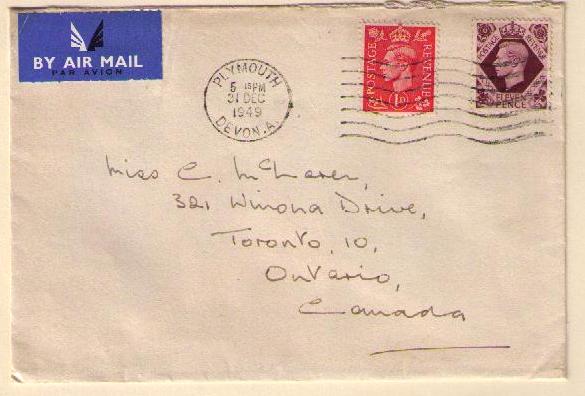 BY AIR MAIL
PAR AVION
PLYMOUTH
5 15PM
31 DEC
1949
DEVON.A.
POSTAGE
REVENUE
1D
POSTAGE
REVENUE
ELEVEN
PENCE
Miss C. McLaren,
321 Winona Drive,
Toronto, 10,
Ontario,
Canada